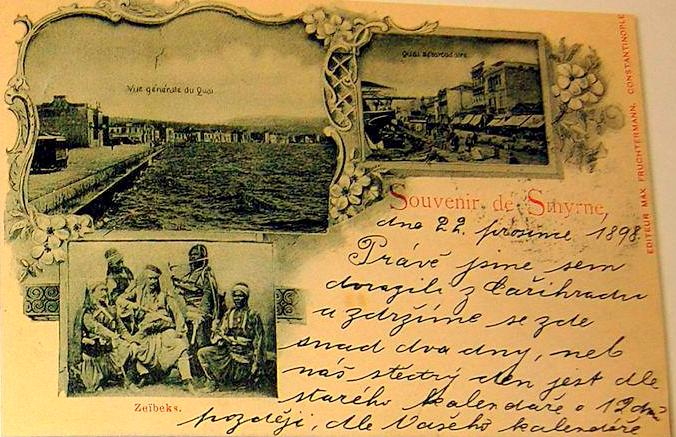 Vue générale du Quai
Quai débarcadaire
EDITEUR MAX FRUCHTERMANN, CONSTANTINOPLE
Souvenir de Smyrne,
dne 22. prosince 1898.
Právě jsme sem
dorazili z Cařihradu
a zdržíme se zde
snad dva dny, neb
náš štědrý den jest dle
starého kalendáře o 12 dní
později, dle Vašeho kalendáře
Zeïbeks.